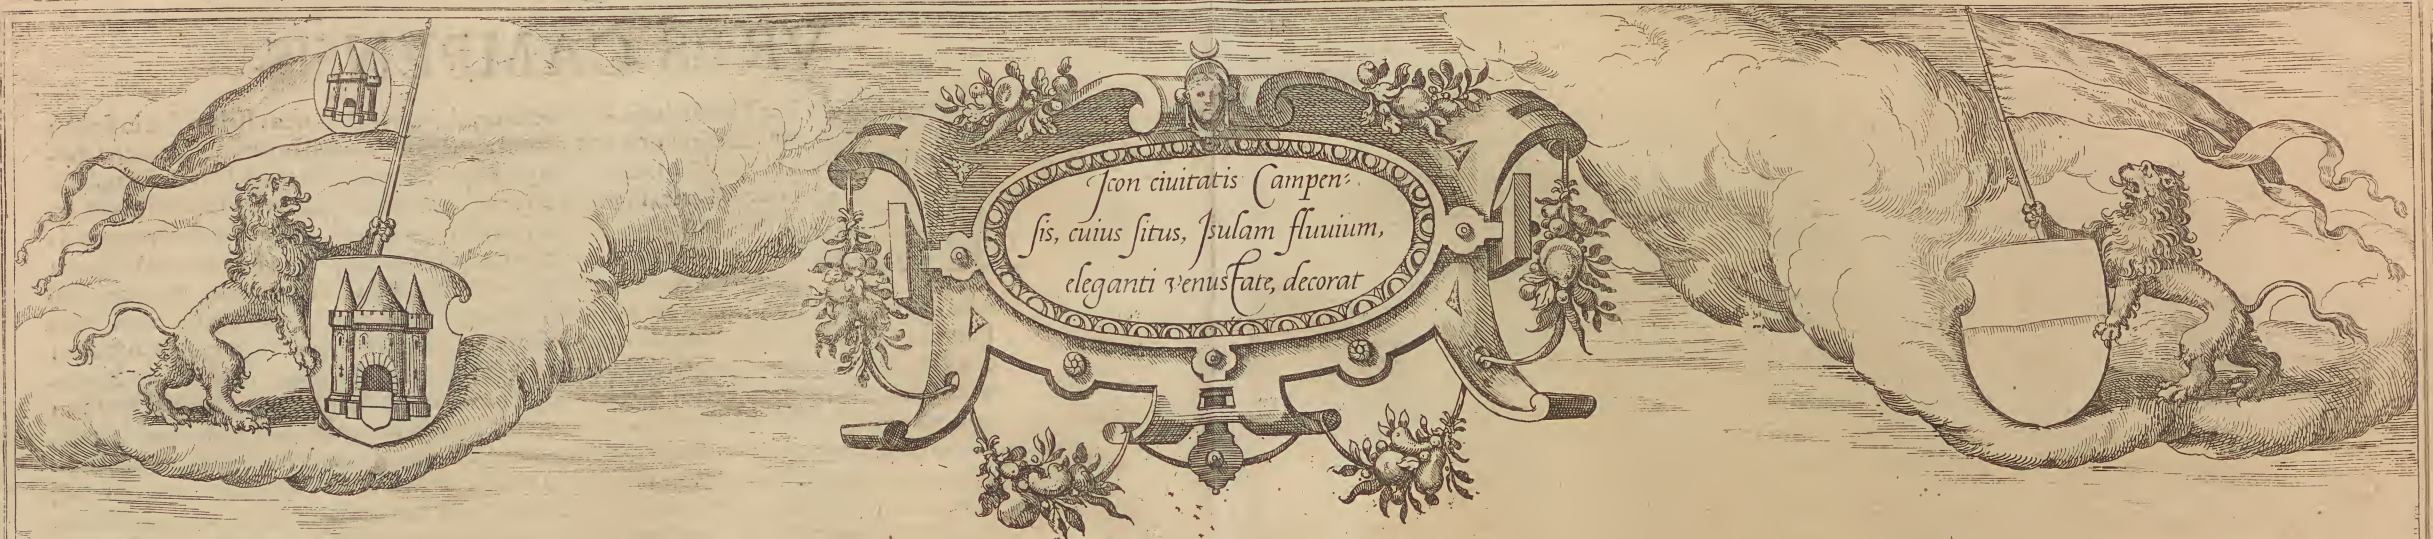 Icon ciuitatis Campen-
sis, cuius situs, Isulam fluuium,
eleganti venustate, decorat